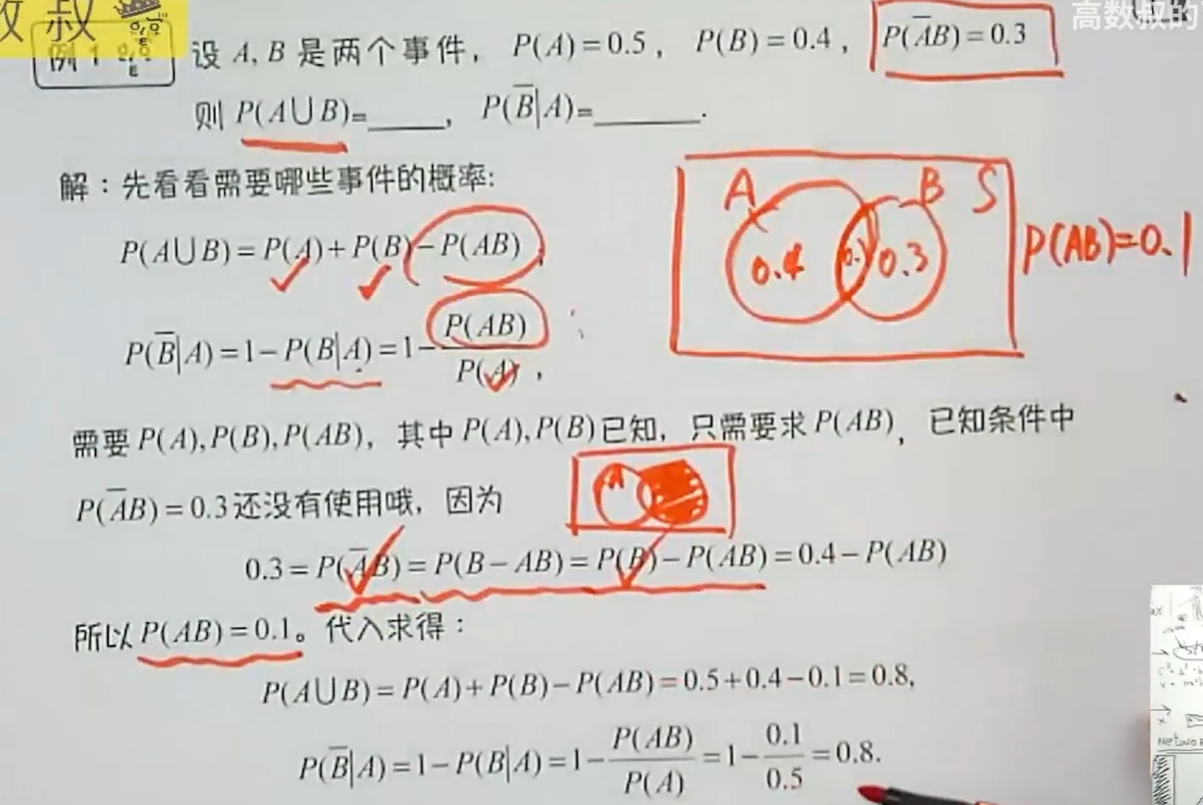 数叔
高数叔的
例1 设 A, B 是两个事件, P(A)=0.5, P(B)=0.4, P(A̅B)=0.3
则 P(A∪B)=____, P(B̅|A)=____.
解：先看看需要哪些事件的概率:
P(A∪B)=P(A)+P(B)-P(AB);
P(B̅|A)=1-P(B|A)=1-P(AB)/P(A),
A B S
0.4 0.3
P(AB)=0.1
需要P(A),P(B),P(AB), 其中P(A),P(B)已知, 只需要求P(AB), 已知条件中
P(A̅B)=0.3还没有使用哦, 因为
A
0.3=P(A̅B)=P(B-AB)=P(B)-P(AB)=0.4-P(AB)
所以P(AB)=0.1。代入求得：
P(A∪B)=P(A)+P(B)-P(AB)=0.5+0.4-0.1=0.8,
P(B̅|A)=1-P(B|A)=1-P(AB)/P(A)=1-0.1/0.5=0.8.